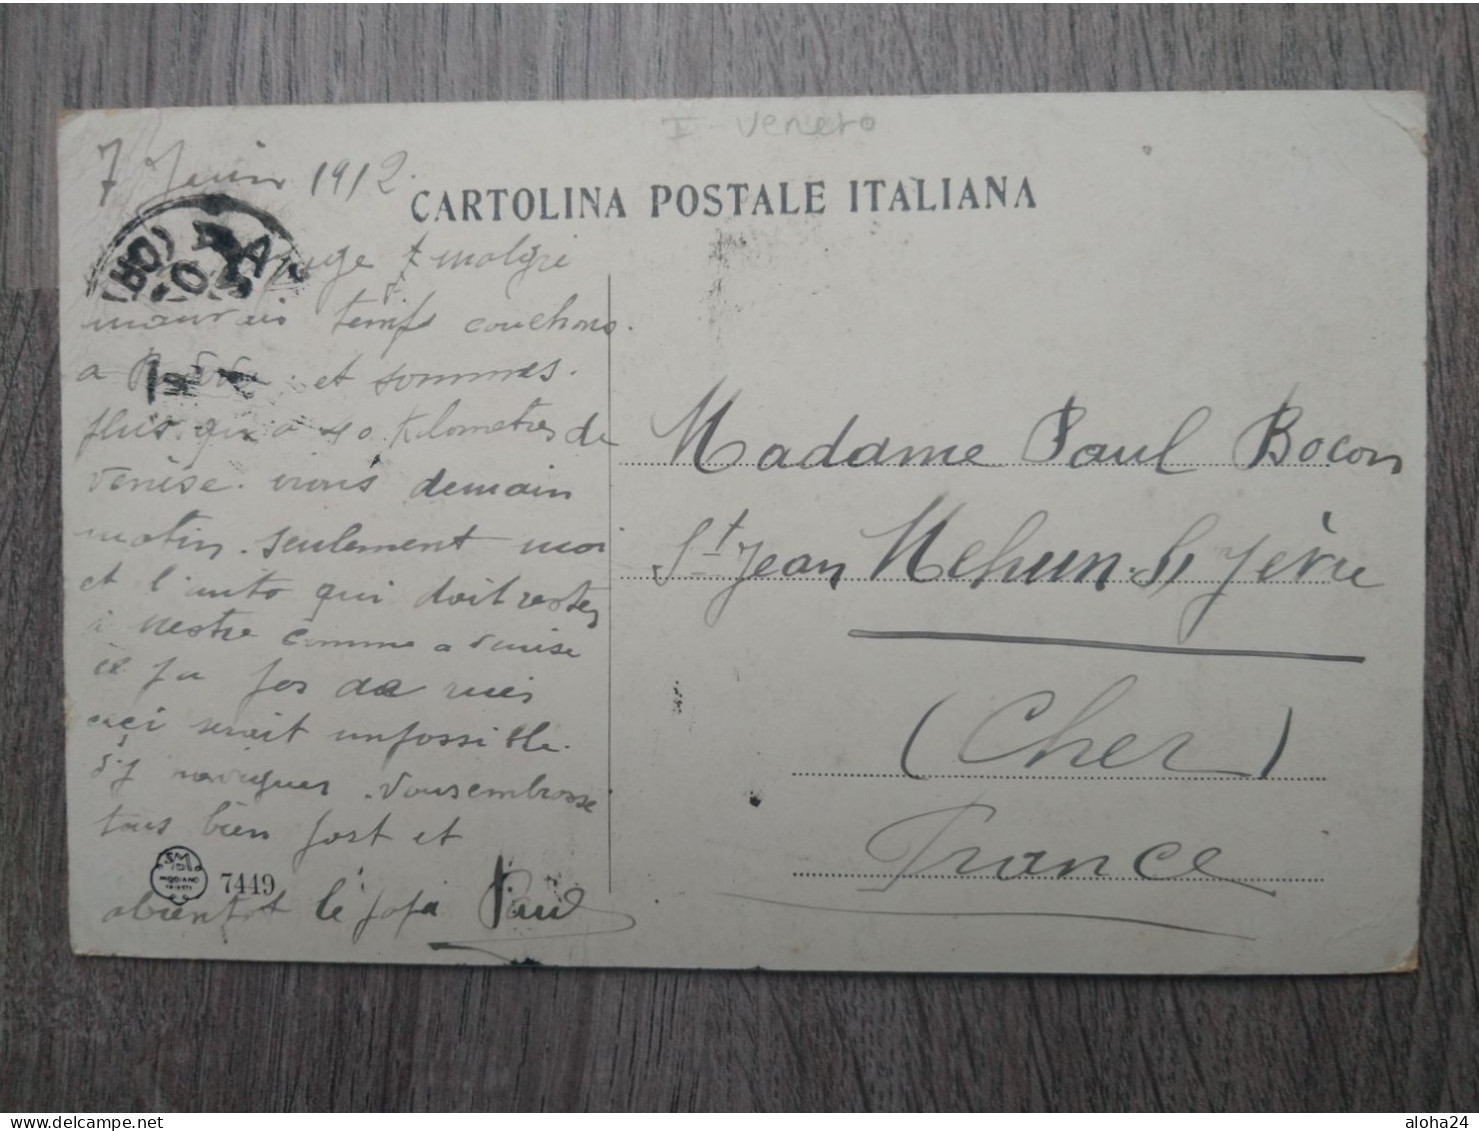 I - Veneto
7 Juin 1912.
CARTOLINA POSTALE ITALIANA
malgré
mauvais temps couchons.
a et sommes.
plus qu a 40 Kilometres de
venise. irons demain
matin. seulement moi
et l'auto qui doit rester
à mestre comme a Venise
il ya pas de rues
ceci serait impossible.
d'y naviguer. Vous embrasse
tous bien fort et
abientot le papa Paul
SM
MODIANO
TRIESTE
7449
Madame Paul Bocon
St Jean Mehun. S/ Yèvre
(Cher)
France
delcampe.net
aloha24